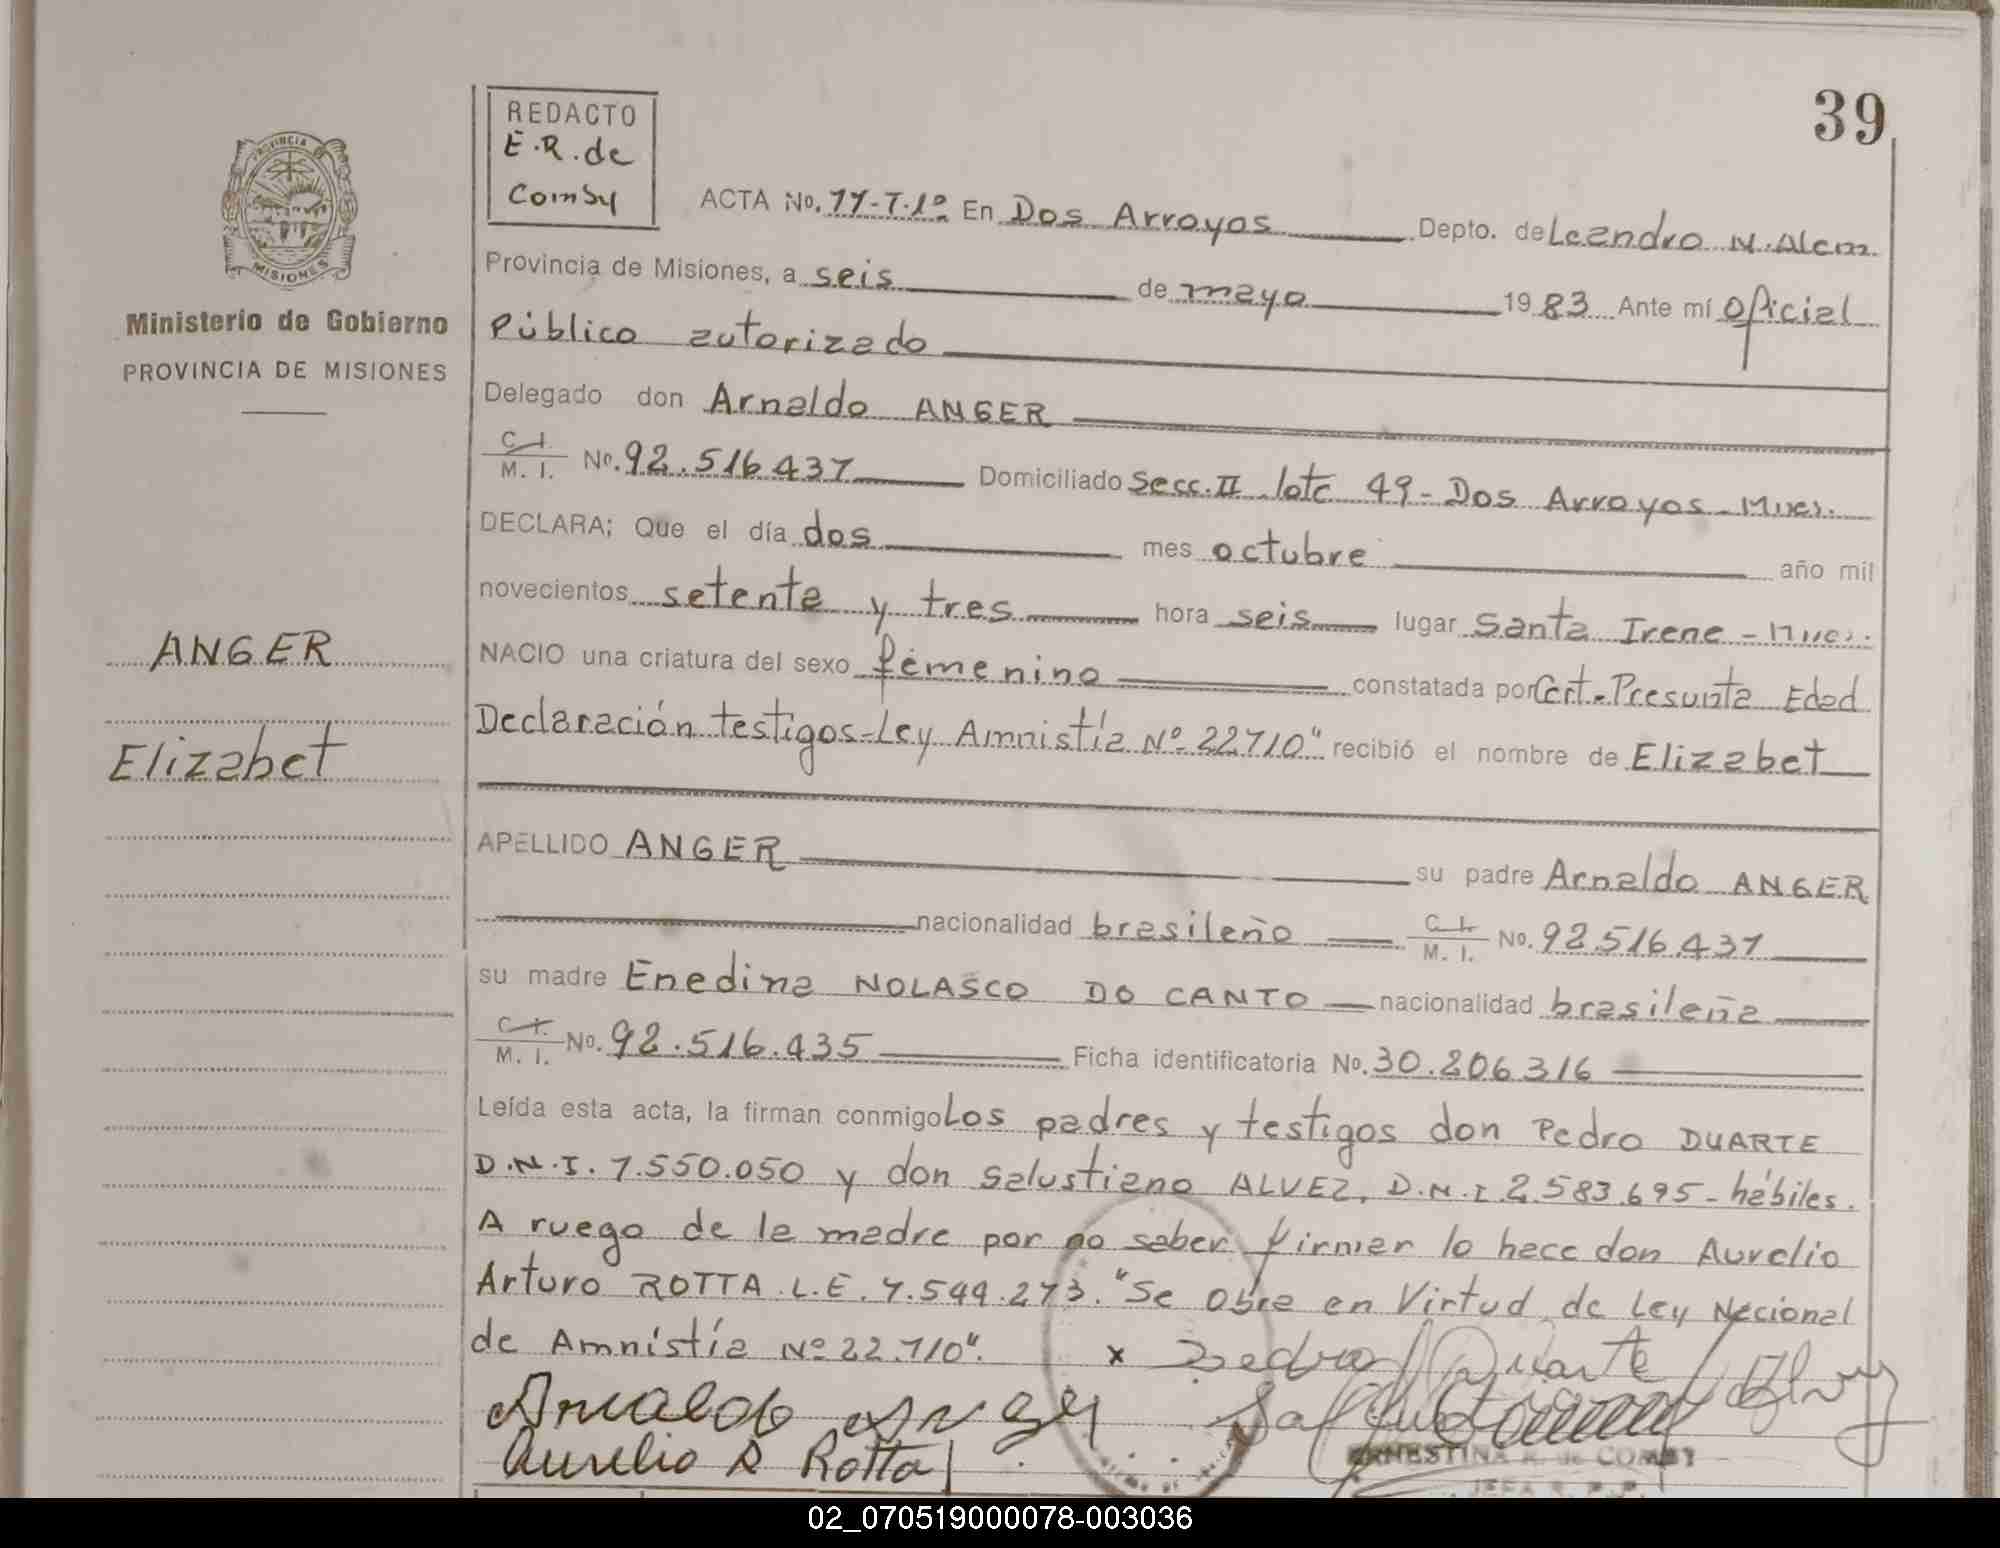 39
REDACTO
E.R. de
Comby
PROVINCIA
MISIONES
Ministerio de Gobierno
PROVINCIA DE MISIONES
ANGER
Elizabet
ACTA No. 77-T.1º En Dos Arroyos Depto. de Leandro N. Alem
Provincia de Misiones, a seis de mayo 1983 Ante mí Oficial
Público autorizado
Delegado don Arnaldo ANGER
C.I. M. I. No. 92.516.437 Domiciliado Secc. II lote 49 - Dos Arroyos - Mnes.
DECLARA; Que el día dos mes octubre año mil
novecientos setenta y tres hora seis lugar Santa Irene - Mnes.
NACIO una criatura del sexo femenino constatada por Cert. Presunta Edad
Declaración testigos-Ley Amnistía Nº 22710" recibió el nombre de Elizabet
APELLIDO ANGER su padre Arnaldo ANGER
nacionalidad brasileño C.I. M. I. No. 92.516.437
su madre Enedina NOLASCO DO CANTO nacionalidad brasileña
C.I. M. I. No. 92.516.435 Ficha identificatoria No. 30.206.316
Leída esta acta, la firman conmigo Los padres y testigos don Pedro DUARTE
D.N.I. 7.550.050 y don Salustiano ALVEZ, D.N.I 2.583.695 - hábiles.
A ruego de la madre por no saber firmar lo hace don Aurelio
Arturo ROTTA L.E. 7.549.273. "Se Obra en Virtud de Ley Nacional
de Amnistía Nº 22.710". x Pedro Duarte
Arnaldo Anger
Aurelio A Rotta
ERNESTINA R. de COMBY
02_070519000078-003036